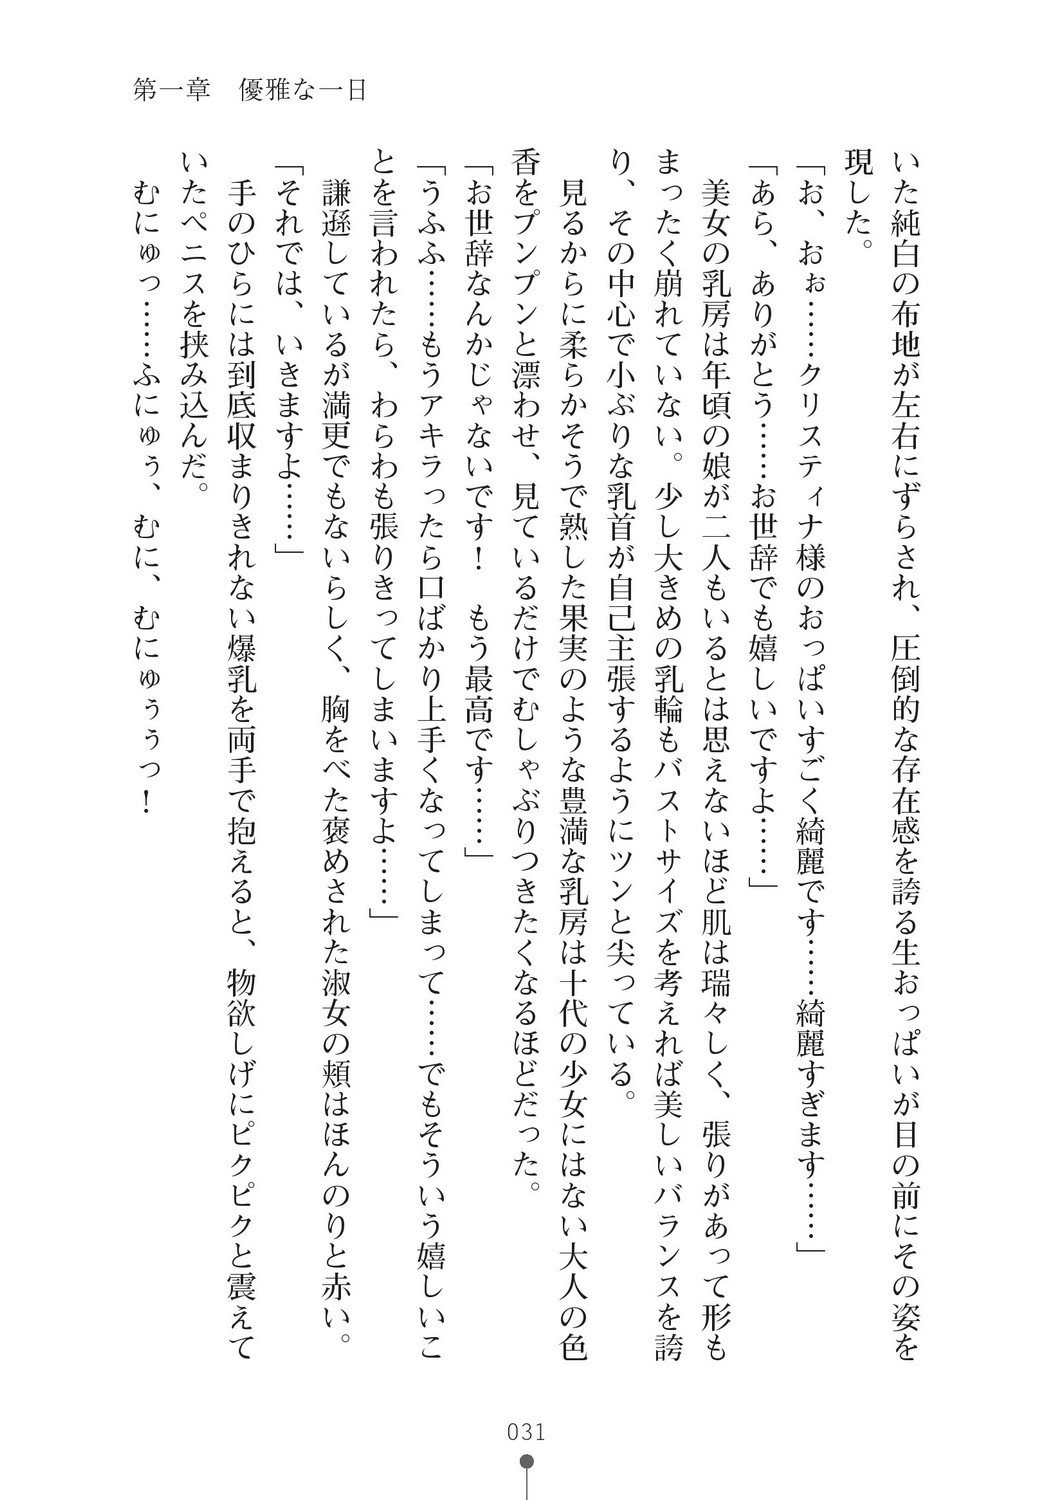 第一章　優雅な一日
いた純白の布地が左右にずらされ、圧倒的な存在感を誇る生おっぱいが目の前にその姿を
現した。
「お、おぉ……クリスティナ様のおっぱいすごく綺麗です……綺麗すぎます……」
「あら、ありがとう……お世辞でも嬉しいですよ……」
　美女の乳房は年頃の娘が二人もいるとは思えないほど肌は瑞々しく、張りがあって形も
まったく崩れていない。少し大きめの乳輪もバストサイズを考えれば美しいバランスを誇
り、その中心で小ぶりな乳首が自己主張するようにツンと尖っている。
　見るからに柔らかそうで熟した果実のような豊満な乳房は十代の少女にはない大人の色
香をプンプンと漂わせ、見ているだけでむしゃぶりつきたくなるほどだった。
「お世辞なんかじゃないです！　もう最高です……」
「うふふ……もうアキラったら口ばかり上手くなってしまって……でもそういう嬉しいこ
とを言われたら、わらわも張りきってしまいますよ……」
　謙遜しているが満更でもないらしく、胸をべた褒めされた淑女の頬はほんのりと赤い。
「それでは、いきますよ……」
　手のひらには到底収まりきれない爆乳を両手で抱えると、物欲しげにピクピクと震えて
いたペニスを挟み込んだ。
　むにゅっ……ふにゅぅ、むに、むにゅぅぅっ！
031